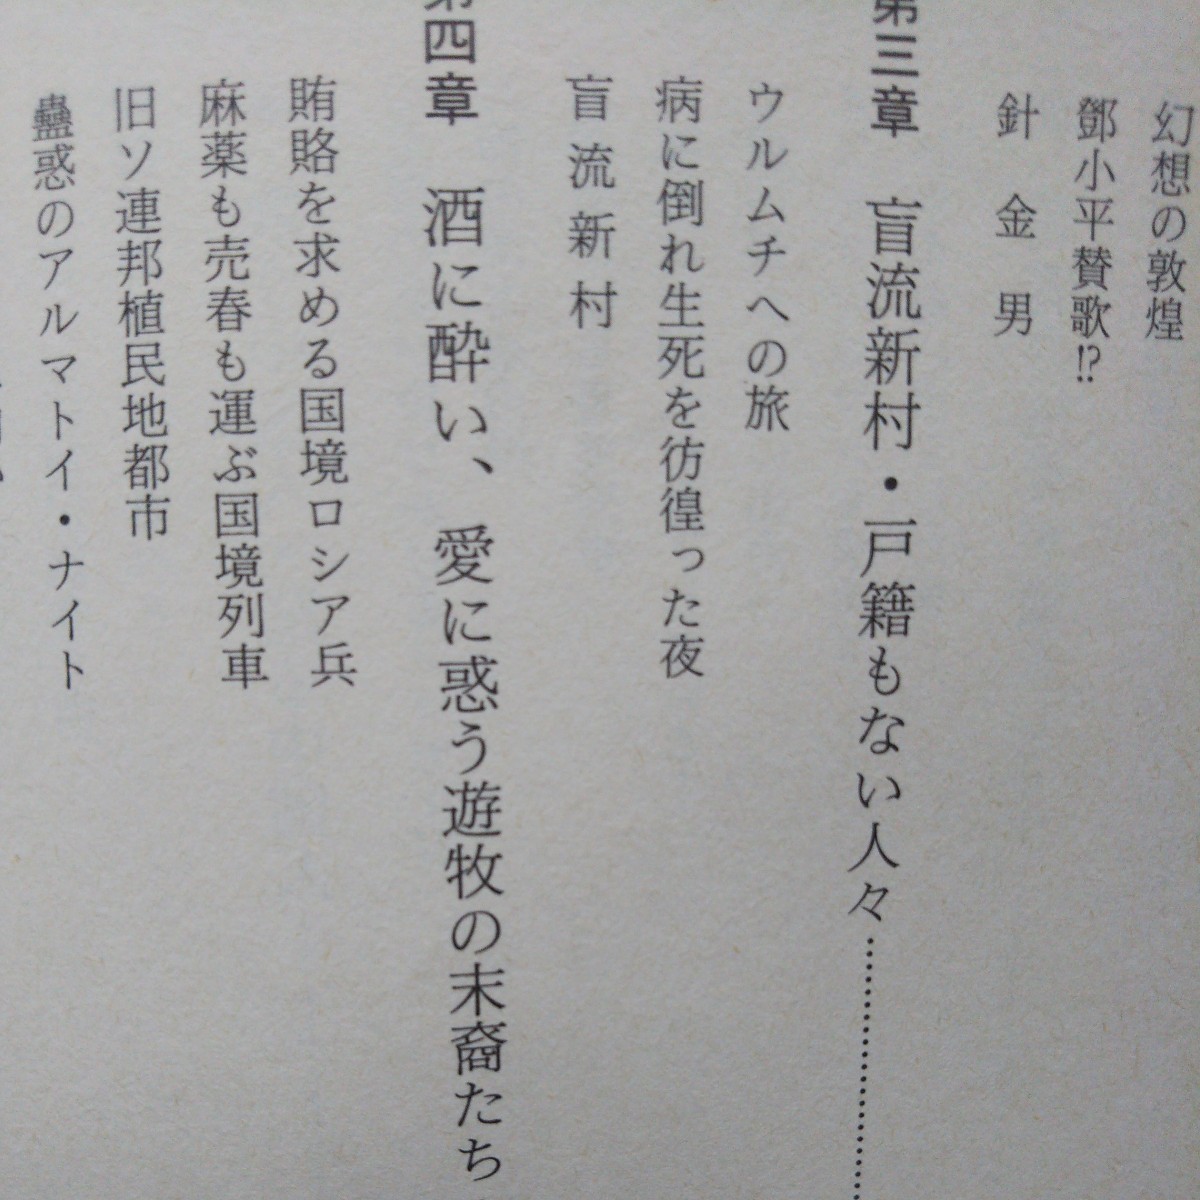 幻想の敦煌
鄧小平賛歌!?
針金男
第三章 盲流新村・戸籍もない人々…………
ウルムチへの旅
病に倒れ生死を彷徨った夜
盲流新村
第四章 酒に酔い、愛に惑う遊牧の末裔たち
賄賂を求める国境ロシア兵
麻薬も売春も運ぶ国境列車
旧ソ連邦植民地都市
蠱惑のアルマトイ・ナイト